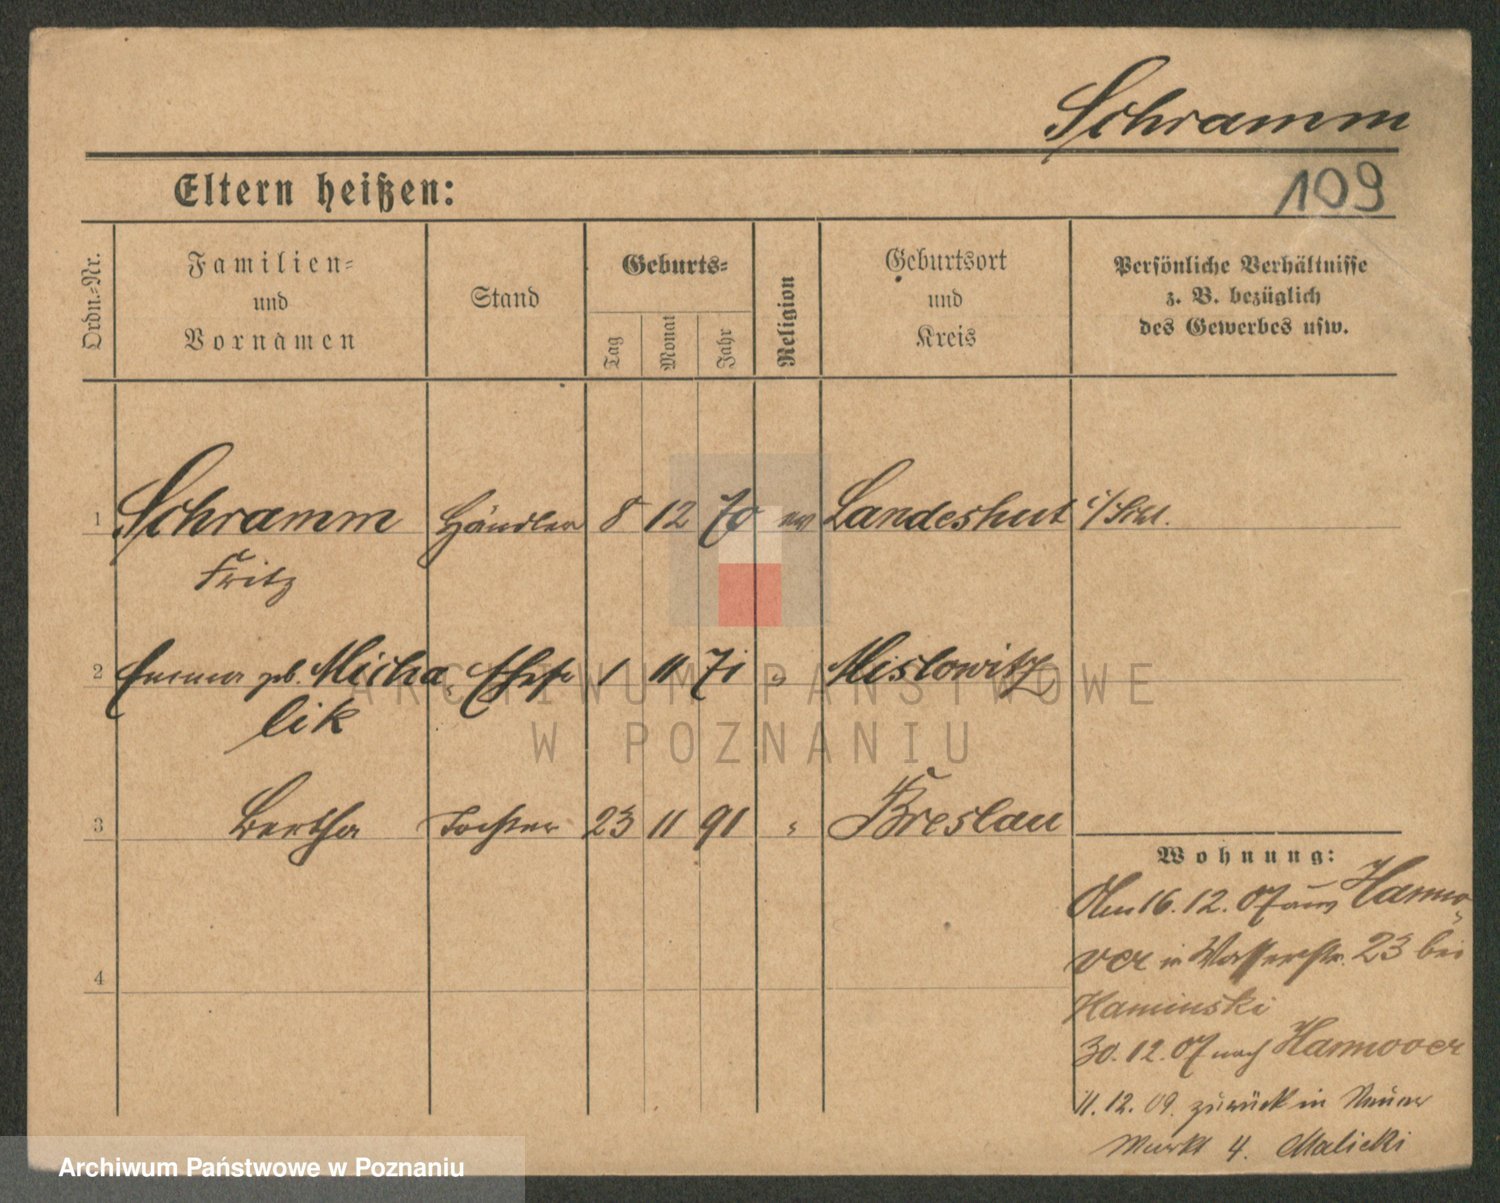 Schramm
109
Eltern heißen:
Ordn.-Nr.
Familien-
und
Vornamen
Stand
Geburts-
Tag
Monat
Jahr
Religion
Geburtsort
und
Kreis
Persönliche Verhältnisse
z. B. bezüglich
des Gewerbes usw.
1 Schramm Händler 8 12 70 ev Landeshut i/Schl.
Fritz
2 Emma geb. Micha- Ehefr 1 11 71 " Mislowitz
lik
3 Bertha Tochter 23 11 91 " Breslau
Wohnung:
Am 16. 12. 07 aus Hanno-
ver in Wasserstr. 23 bei
Kaminski
30. 12. 07 nach Hannover
11. 12. 09. zurück in Neuer
Markt 4. Malicki
4
ARCHIWUM PAŃSTWOWE
W POZNANIU
Archiwum Państwowe w Poznaniu